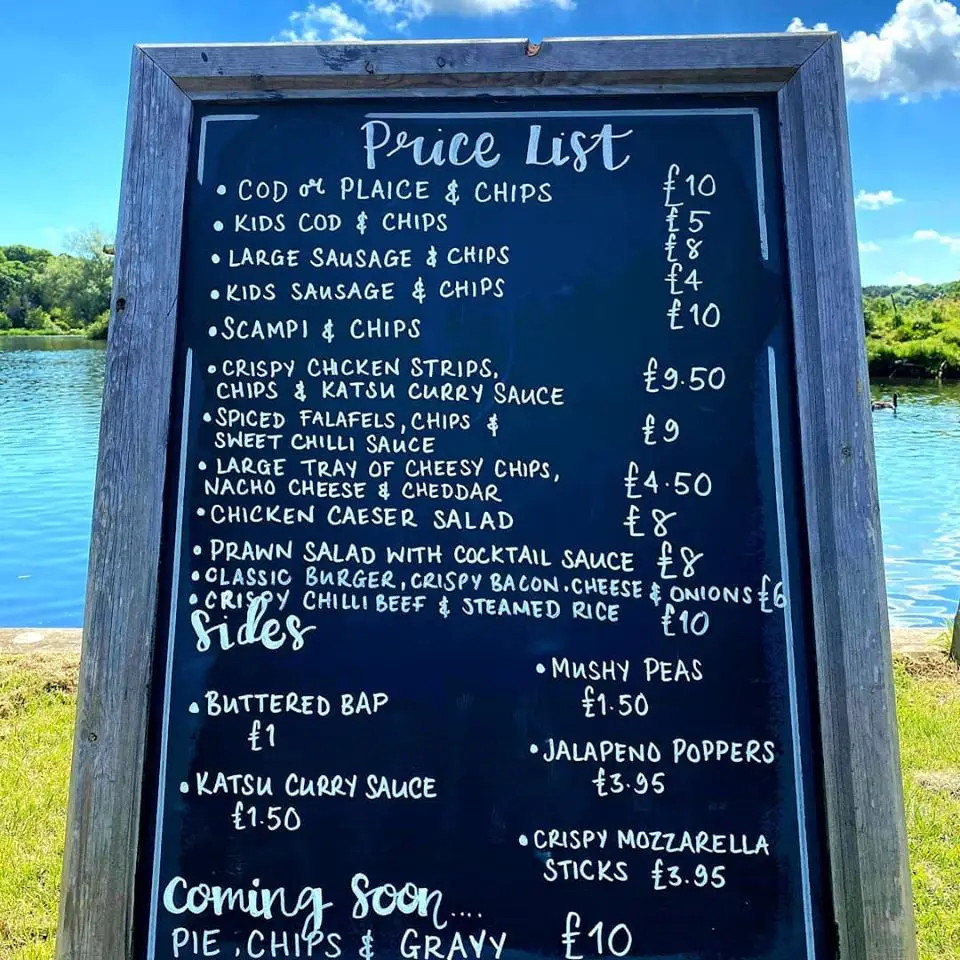 Price List
• COD or PLAICE & CHIPS £10
• KIDS COD & CHIPS £5
• LARGE SAUSAGE & CHIPS £8
• KIDS SAUSAGE & CHIPS £4
• SCAMPI & CHIPS £10
• CRISPY CHICKEN STRIPS,
CHIPS & KATSU CURRY SAUCE £9.50
• SPICED FALAFELS, CHIPS &
SWEET CHILLI SAUCE £9
• LARGE TRAY OF CHEESY CHIPS,
NACHO CHEESE & CHEDDAR £4.50
• CHICKEN CAESER SALAD £8
• PRAWN SALAD WITH COCKTAIL SAUCE £8
• CLASSIC BURGER, CRISPY BACON. CHEESE & ONIONS £6
• CRISPY CHILLI BEEF & STEAMED RICE £10
Sides
• BUTTERED BAP
£1
• KATSU CURRY SAUCE
£1.50
• MUSHY PEAS
£1.50
• JALAPENO POPPERS
£3.95
• CRISPY MOZZARELLA
STICKS £3.95
Coming Soon....
PIE, CHIPS & GRAVY £10